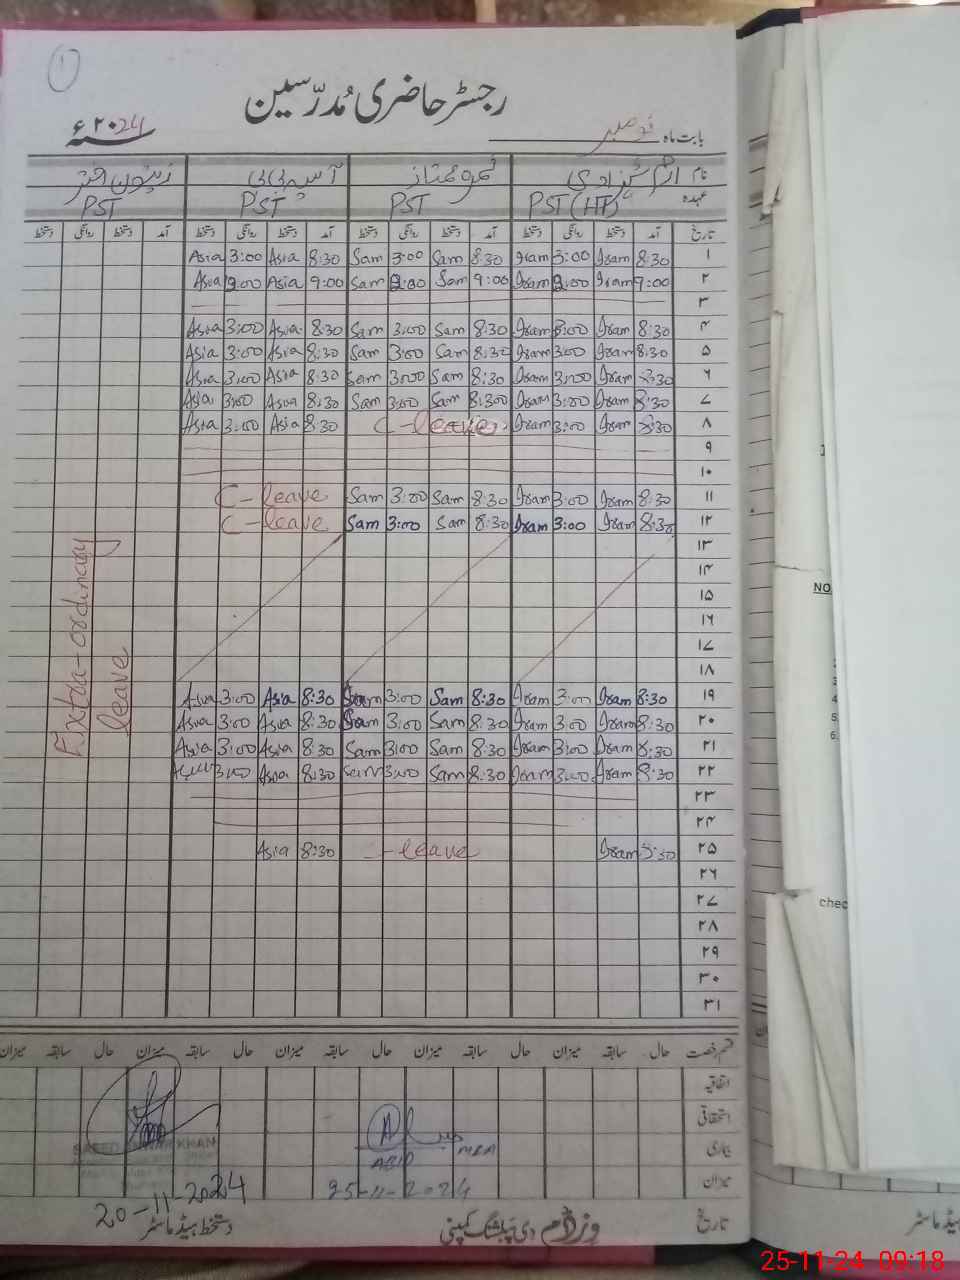 ۱
رجسٹر حاضری مُدرّسین
بابت ماہ نومبر سنہ ۲۰24ء
نام ارم شہزادی ثمرہ ممتاز آسیہ بی بی زیتون اختر
عہدہ PST (HT) PST PST PST
تاریخ آمد دستخط روانگی دستخط آمد دستخط روانگی دستخط آمد دستخط روانگی دستخط آمد دستخط روانگی دستخط
۱ 8:30 Iram 3:00 Iram 8:30 Sam 3:00 Sam 8:30 Asia 3:00 Asia
۲ 9:00 Iram 9:00 Sam 9:00 Asia Asia
۳
۴ 8:30 Iram 3:00 Iram 8:30 Sam 3:00 Sam 8:30 Asia 3:00 Asia
۵ 8:30 Iram 3:00 Iram 8:30 Sam 3:00 Sam 8:30 Asia 3:00 Asia
۶ 8:30 Iram 3:00 Iram 8:30 Sam 3:00 Sam 8:30 Asia 3:00 Asia
۷ 8:30 Iram 3:00 Iram 8:30 Sam 3:00 Sam 8:30 Asia 3:00 Asia
۸ 8:30 Iram 3:00 Iram C-leave 8:30 Asia 3:00 Asia
۹
۱۰
۱۱ 8:30 Iram 3:00 Iram 8:30 Sam 3:00 Sam C-leave
۱۲ 8:30 Iram 3:00 Iram 8:30 Sam 3:00 Sam C-leave
۱۳
۱۴
۱۵
۱۶
۱۷
۱۸
Extra-ordinary
leave
۱۹ 8:30 Iram 3:00 Iram 8:30 Sam 3:00 Sam 8:30 Asia 3:00 Asia
۲۰ 8:30 Iram 3:00 Iram 8:30 Sam 3:00 Sam 8:30 Asia 3:00 Asia
۲۱ 8:30 Iram 3:00 Iram 8:30 Sam 3:00 Sam 8:30 Asia 3:00 Asia
۲۲ 8:30 Iram 3:00 Iram 8:30 Sam 3:00 Sam 8:30 Asia 3:00 Asia
۲۳
۲۴
۲۵ 8:30 Iram leave 8:30 Asia
۲۶
۲۷
۲۸
۲۹
۳۰
۳۱
قسم رخصت حال سابقہ میزان حال سابقہ میزان حال سابقہ میزان حال سابقہ میزان حال سابقہ میزان
اتفاقیہ
استحقاقی
بیماری
میزان
SAEED KHAN
ABID MEA
25-11-2024
20-11-2024
تاریخ دی پبلشنگ کمپنی دستخط ہیڈ ماسٹر
NO
chec
25-11-24 09:18